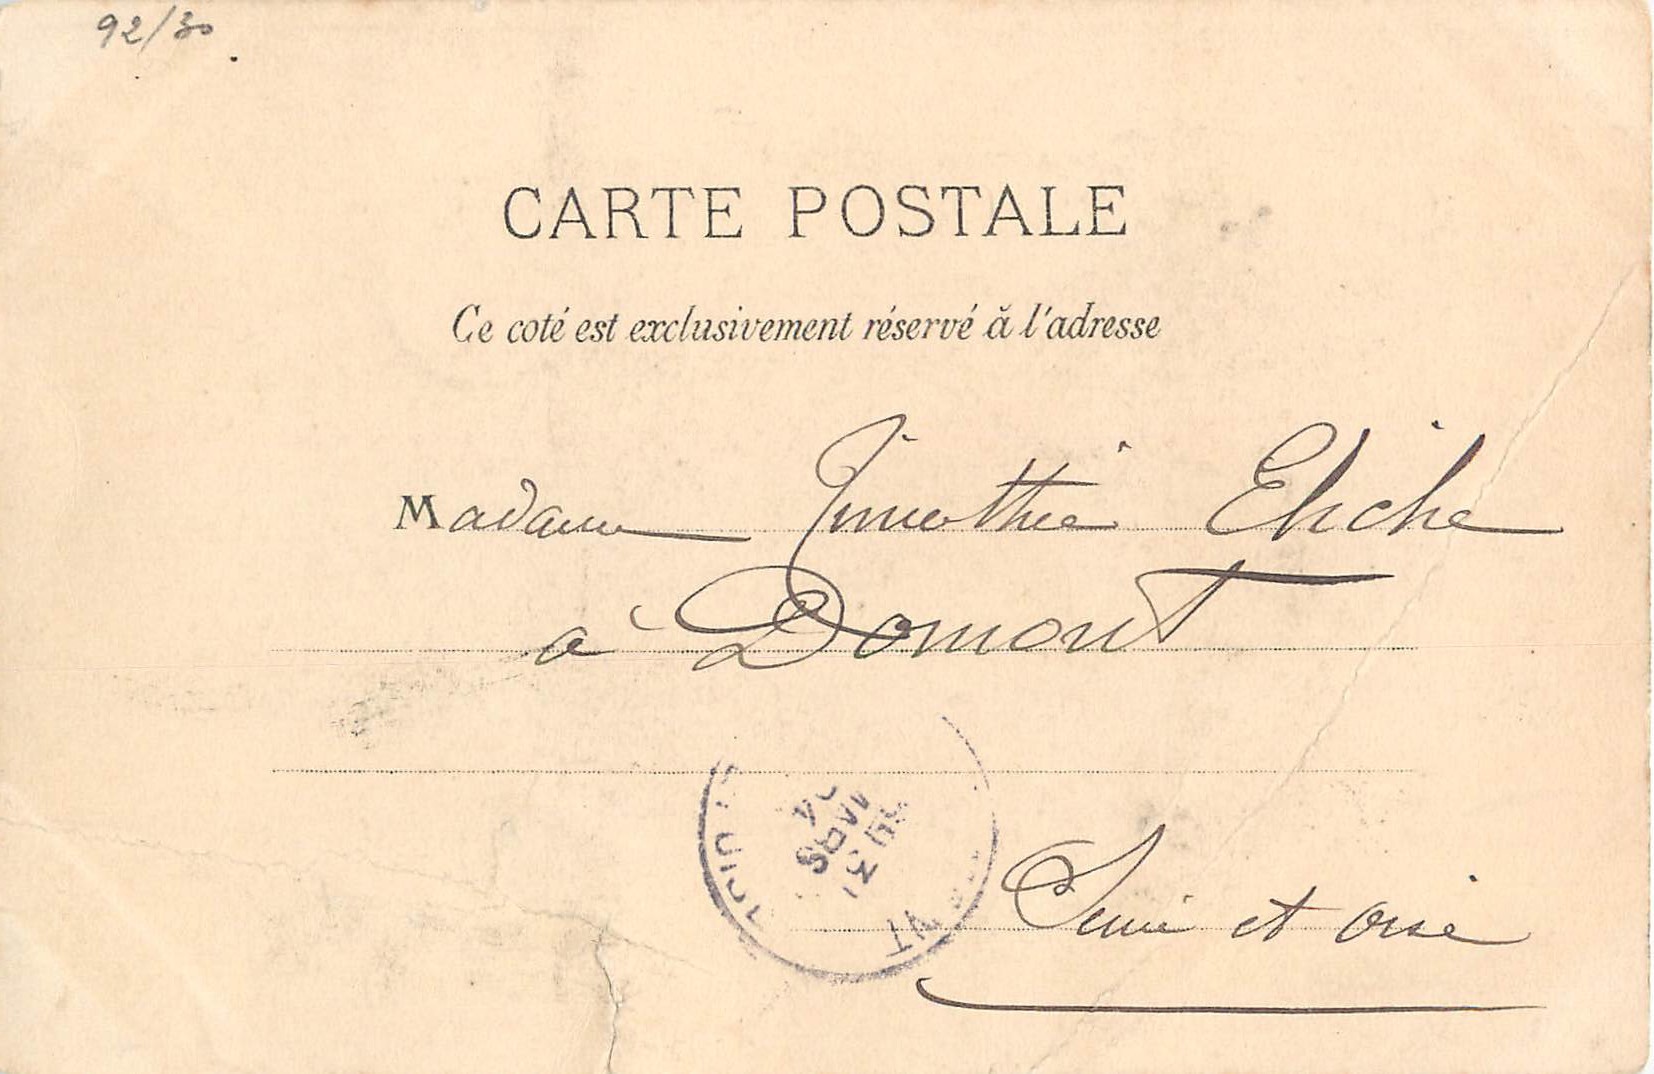 92/30
CARTE POSTALE
Ce coté est exclusivement réservé à l'adresse
Madame Timothée Eliche
à Domont
Seine et Oise
MARS